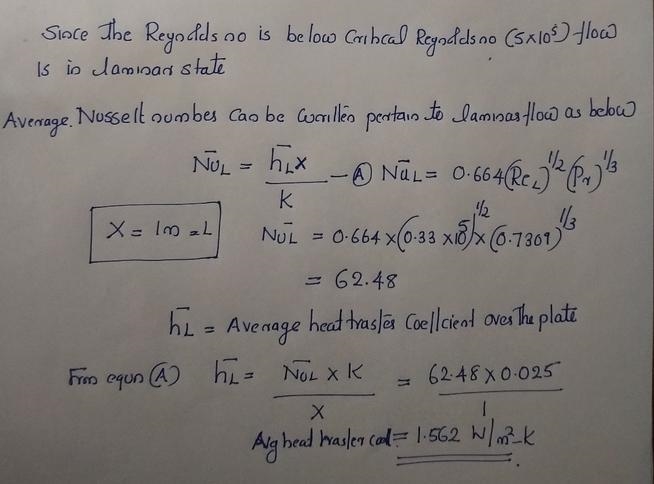 Since The Reynolds no is below Critical Reynolds no (5x10⁵) flow
Is in laminar state
Average Nusselt number Can be written pertain to laminar flow as below
N̄uL = h̄L x / K — (A) N̄uL = 0.664 (ReL)^1/2 (Pr)^1/3
X = 1m = L N̄uL = 0.664 x (0.33 x 10⁵)^1/2 x (0.7309)^1/3
= 62.48
h̄L = Average heat trasfer Coefficient over The plate
From equn (A) h̄L = N̄uL x K / X = 62.48 x 0.025 / 1
Avg head trasfer coef = 1.562 W/m²-K